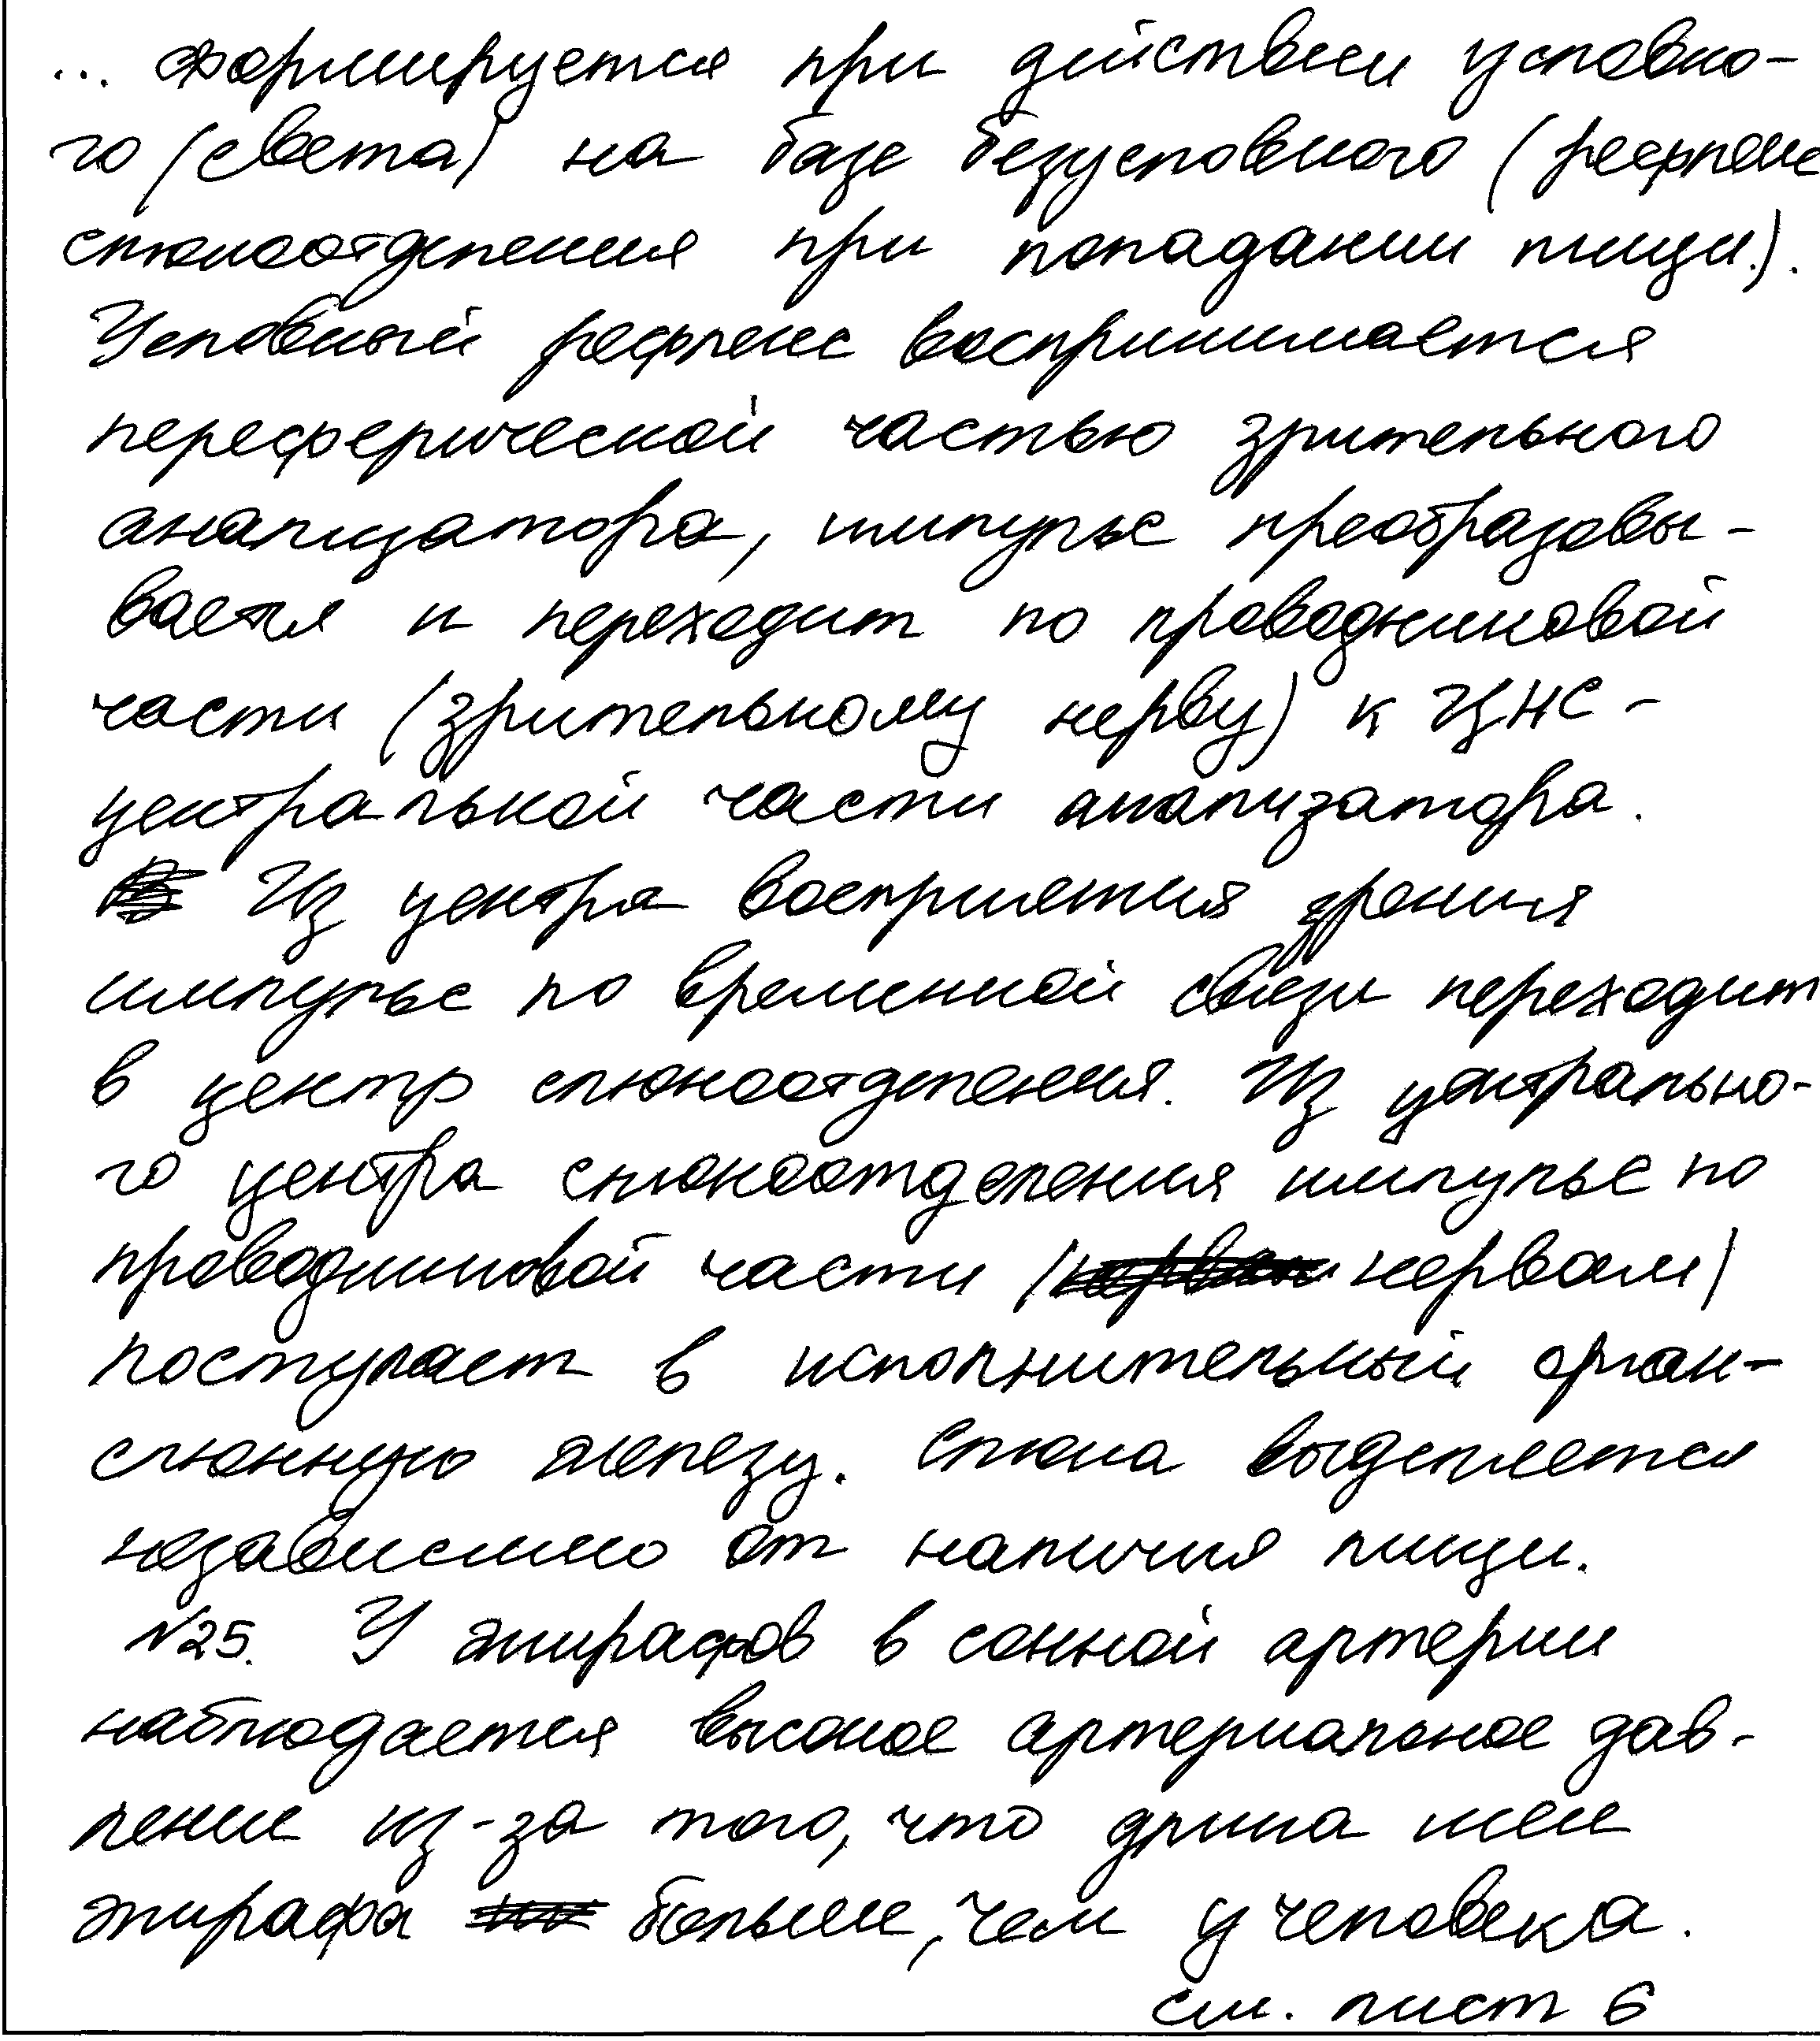 ... формируется при действии условно-
го (света) на базе безусловного (рефлекс
слюноотделения при попадании пищи.).
Условный рефлекс воспринимается
переферической частью зрительного
анализатора, импульс преобразовы-
вается и переходит по проводниковой
части (зрительному нерву) к ЦНС -
центральной части анализатора.
Из центра восприятия зрения
импульс по временной связи переходит
в центр слюноотделения. Из центрально-
го центра слюноотделения импульс по
проводниковой части (нервам)
поступает в исполнительный орган-
слюнную железу. Слюна выделяется
независимо от наличия пищи.
№25. У жирафов в сонной артерии
наблюдается высокое артериальное дав-
ление из-за того, что длина шеи
жирафа больше, чем у человека.
см. лист 6